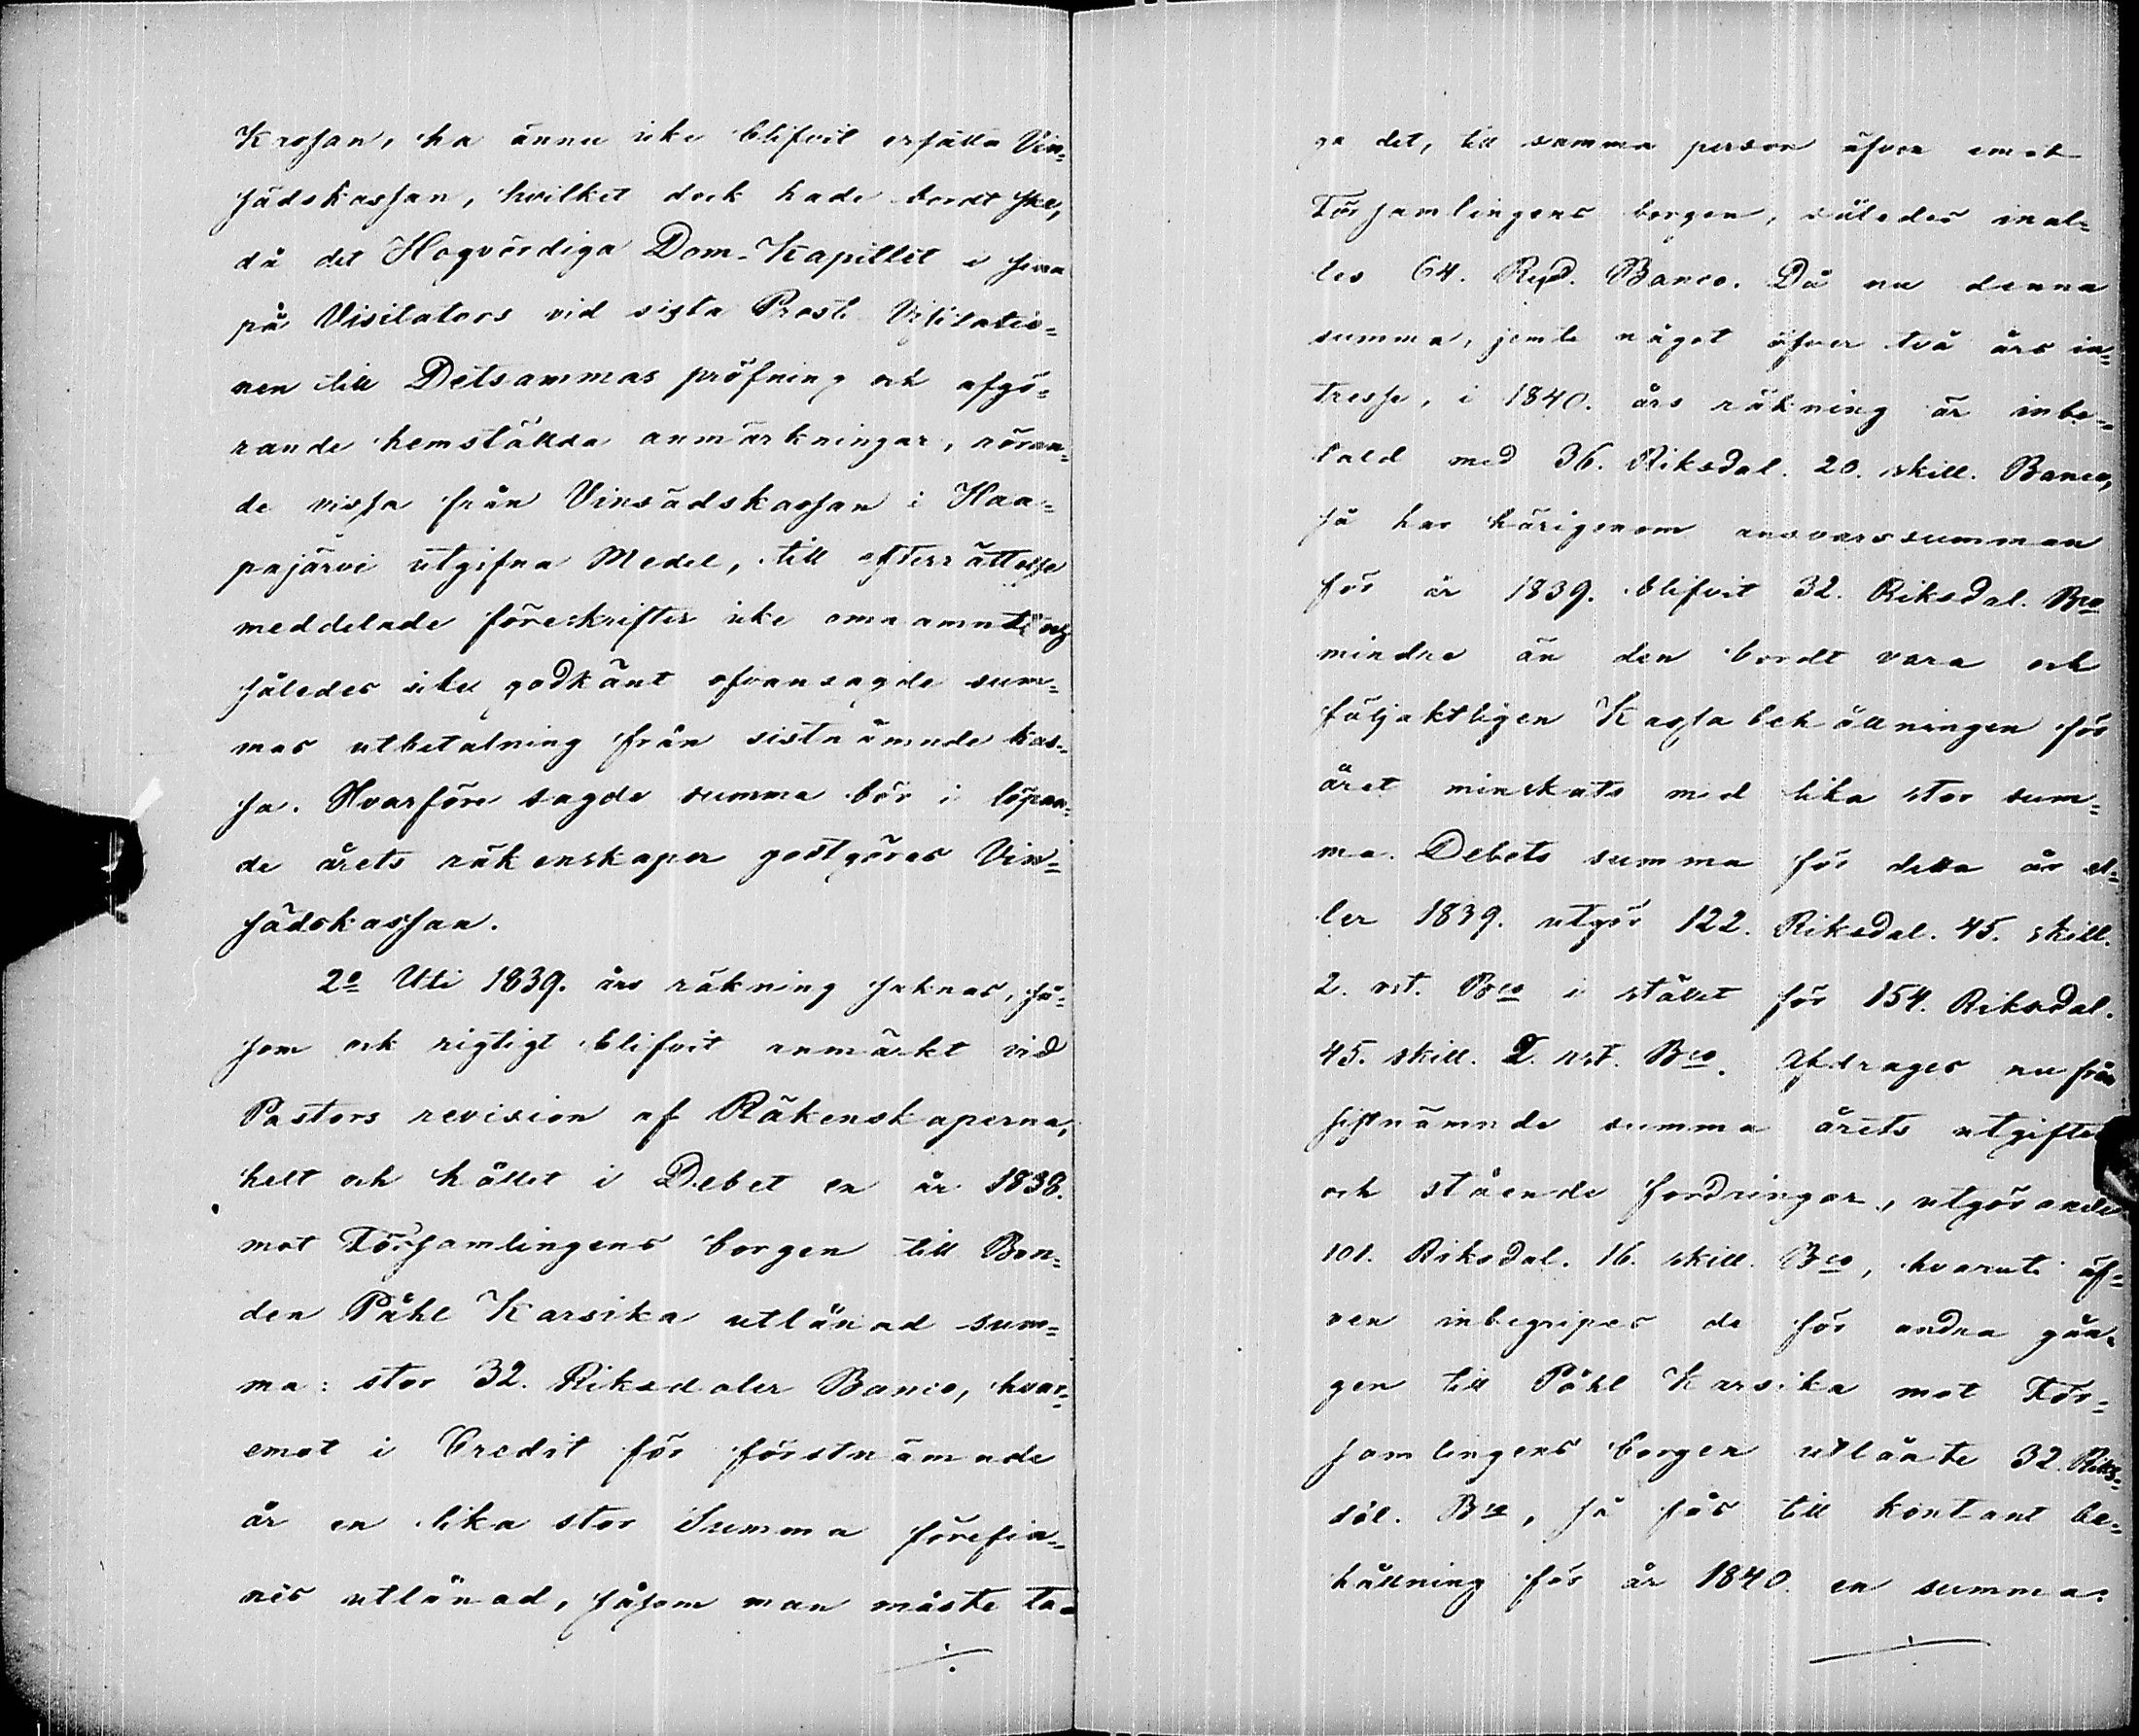 Krosan, ha ännu ike blifvit ersatta Vin=
sädskassan, hvilket dock hade bordt ske,
då det Högvördiga Dom-Kapitlet i sina
på Visitators vid sista Prost Visitatio=
nen till Detsammas pröfning och afgö=
rande hemstälda anmärkningar, röran=
de vissa från Vinsädskassan i Haa=
pajärvi utgifna Medel, till efterrättelse
meddelade föreskrifter ike omnämnt och
således ike godkänt ofvansagde sum=
mas utbetalning från sistnämnde kas=
sa. Hvarföre sagde summa bör i löpan=
de årets räkenskaper godtgöras Vin=
sädskassan.
2o Uti 1839. års räkning saknas, så=
som ock rigtigt blifvit anmärkt vid
Pastors revision af Räkenskaperna,
helt och hållet i Debet en år 1838.
mot Församlingens borgen till Bon=
den Påhl Karsika utlånad sum=
ma: stor 32. Riksdaler Banco, hvar=
emot i Credit för förstnämnde
år en lika stor Summa förefin=
nes utlånad, såsom man måste ta=
ga det, till samma person äfven emot
Församlingens borgen, således inal=
les 64. Rgd. Banco. Då nu denna
summa, jemte något öfver två års in=
tresse, i 1840. års räkning är inbe=
tald med 36. Riksdal. 20. skill. Banco,
så har härigenom ansvarssumman
för år 1839. blifvit 32. Riksdal. Bco
mindre än den bordt vara och
följaktligen Kassabehållningen för
året minskats med lika stor sum=
ma. Debets summa för detta år el=
ler 1839. utgör 122. Riksdal. 45. skill.
2. rst. Bco i stället för 154. Riksdal.
45. skill. 2. rst. Bco. Afdrages nu från
sistnämnde summa årets utgifter
och stående fordringar, utgörande
101. Riksdal. 16. skill. Bco, hvaruti äf=
ven inbegripes de för andra gån=
gen till Påhl Karsika mot För=
samlingens borgen utlånte 32. Riks=
dal. Bco, så fås till kontant be=
hållning för år 1840. en summa: